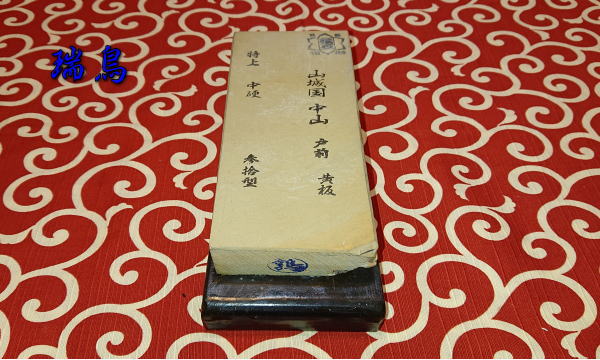 瑞鳥
山城国 中山 戸前 黄板
特上 中硬
参拾型